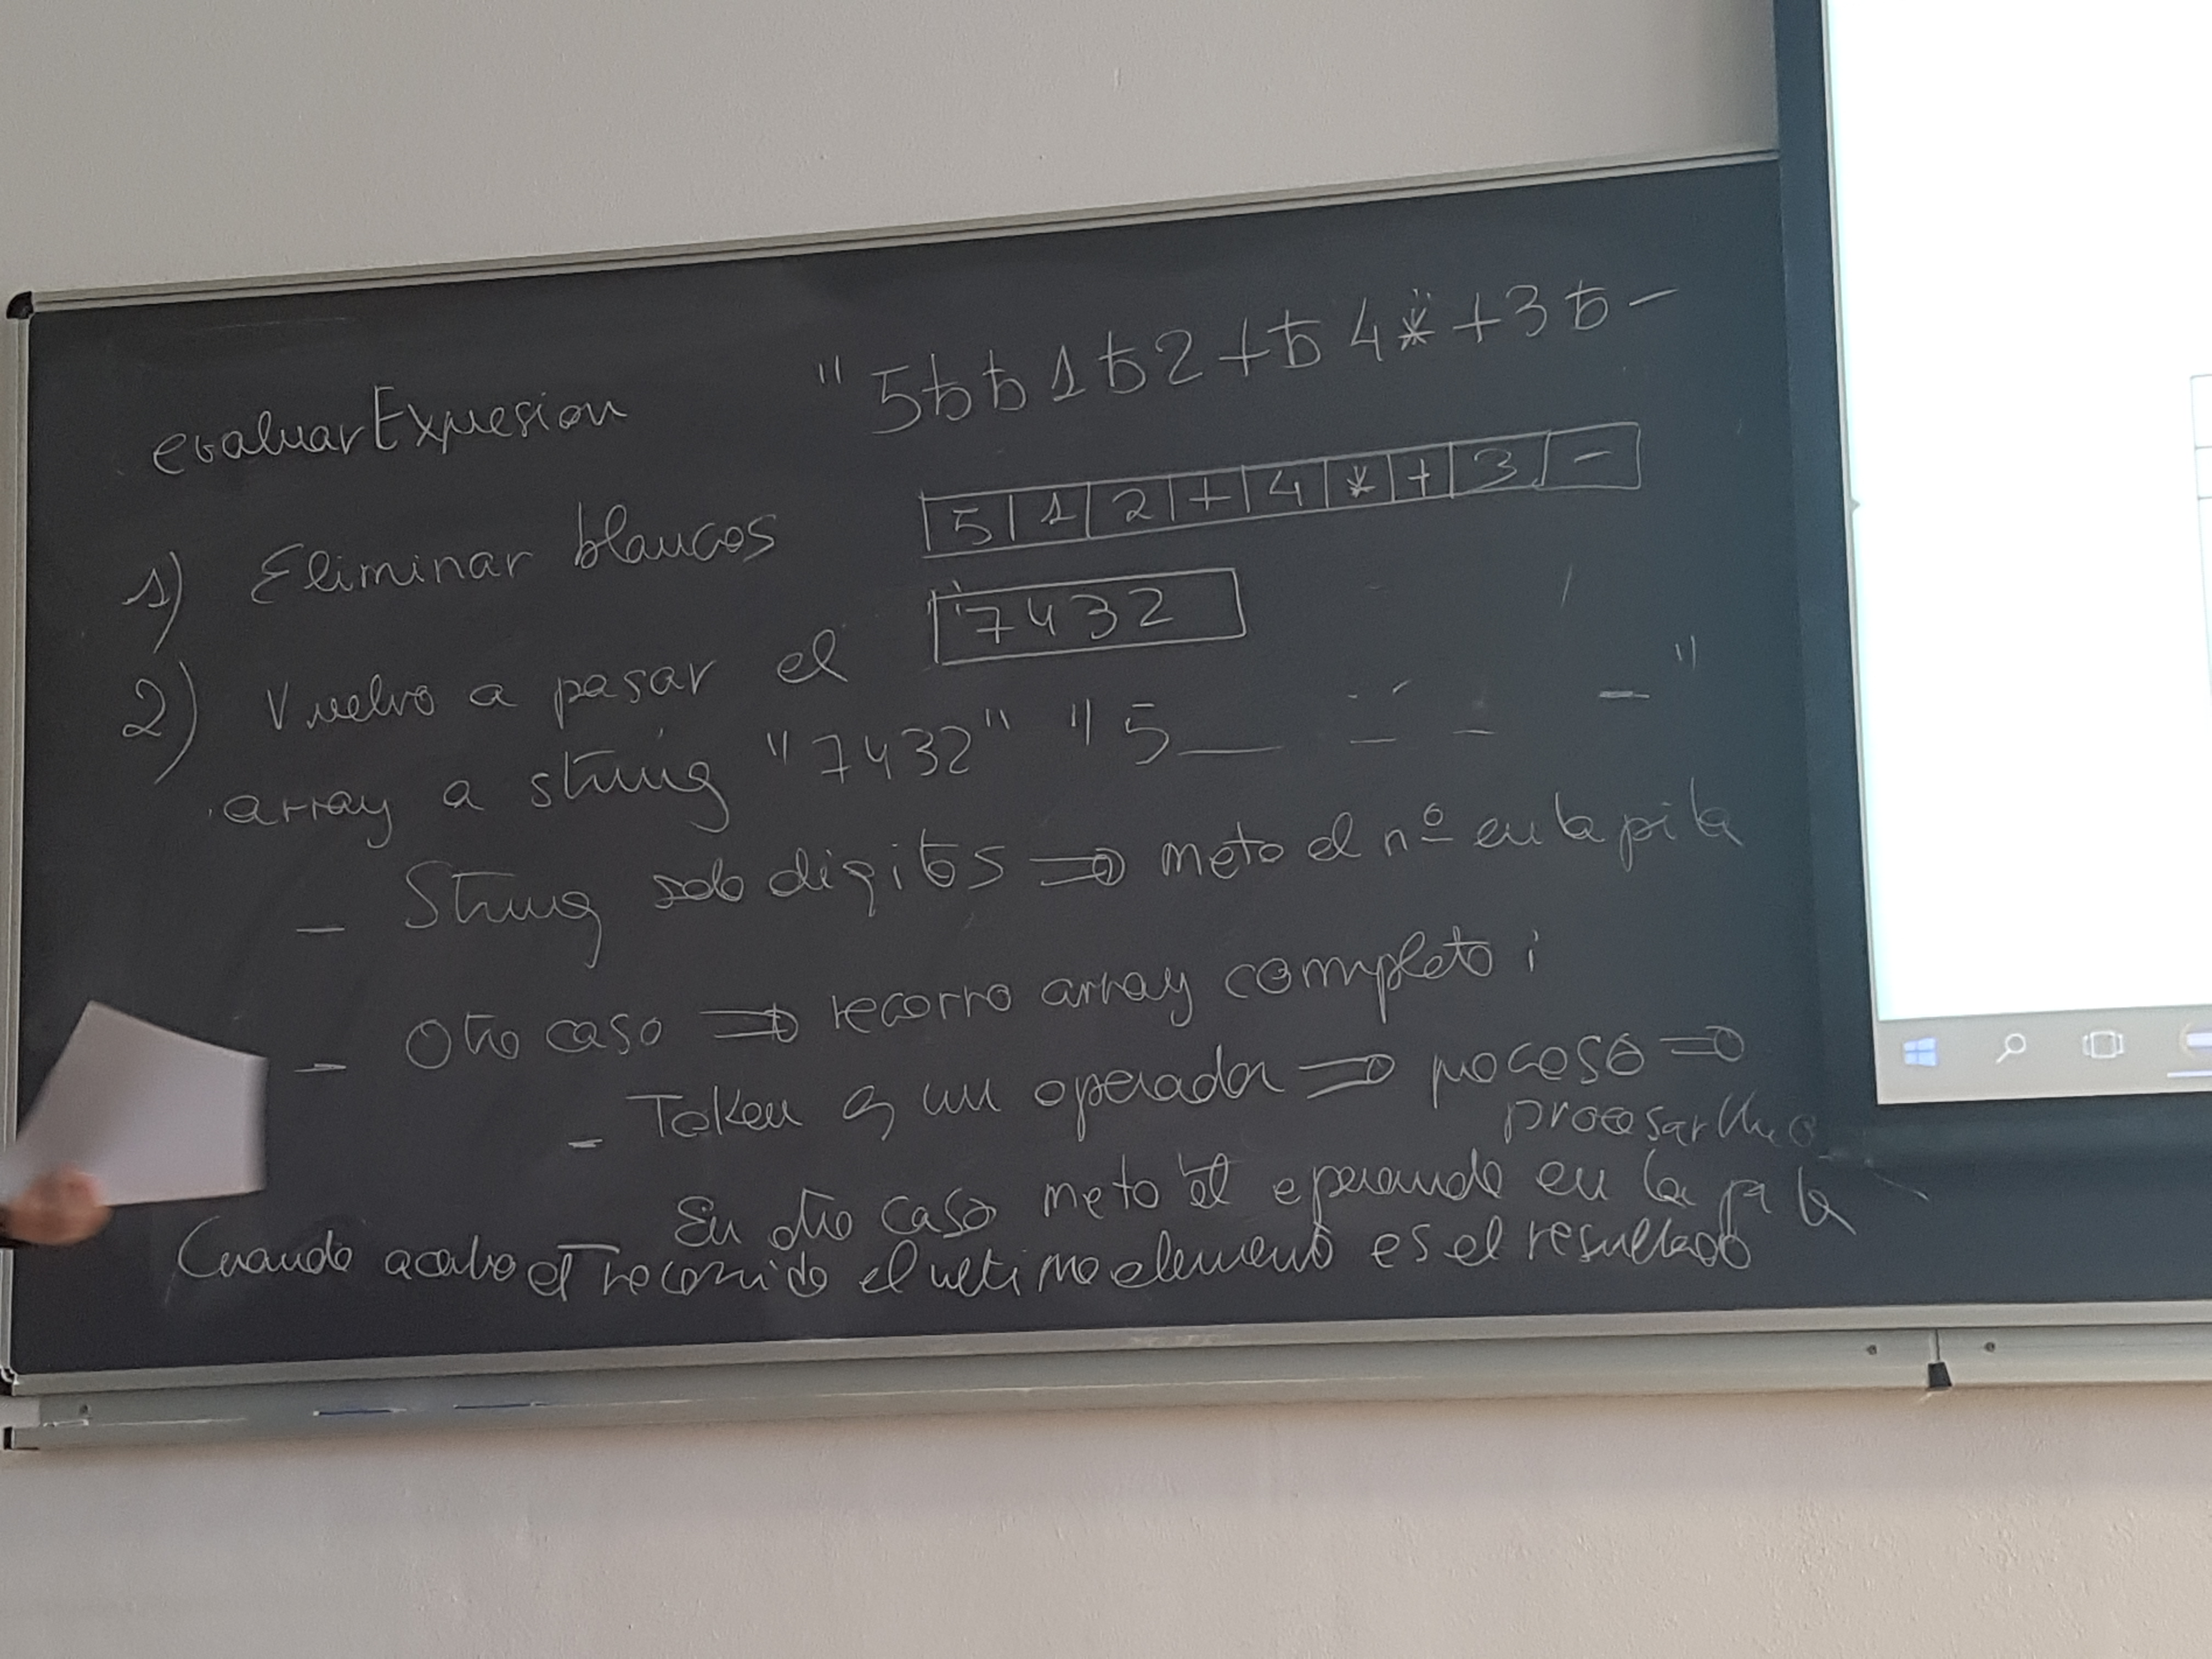 evaluarExpresion " 5ƀƀ1ƀ2+ƀ4*+3ƀ-
1) Eliminar blancos 5 1 2 + 4 * + 3 -
7432
2) Vuelvo a pasar el
array a string "7432" "5 — — — —"
- String solo digitos => meto el nº en la pila
- Otro caso => recorro array completo i
- Token es un operador => proceso =>
procesarUno
- En otro caso meto el operando en la pila
Cuando acabo el recorrido el ultimo elemento es el resultado